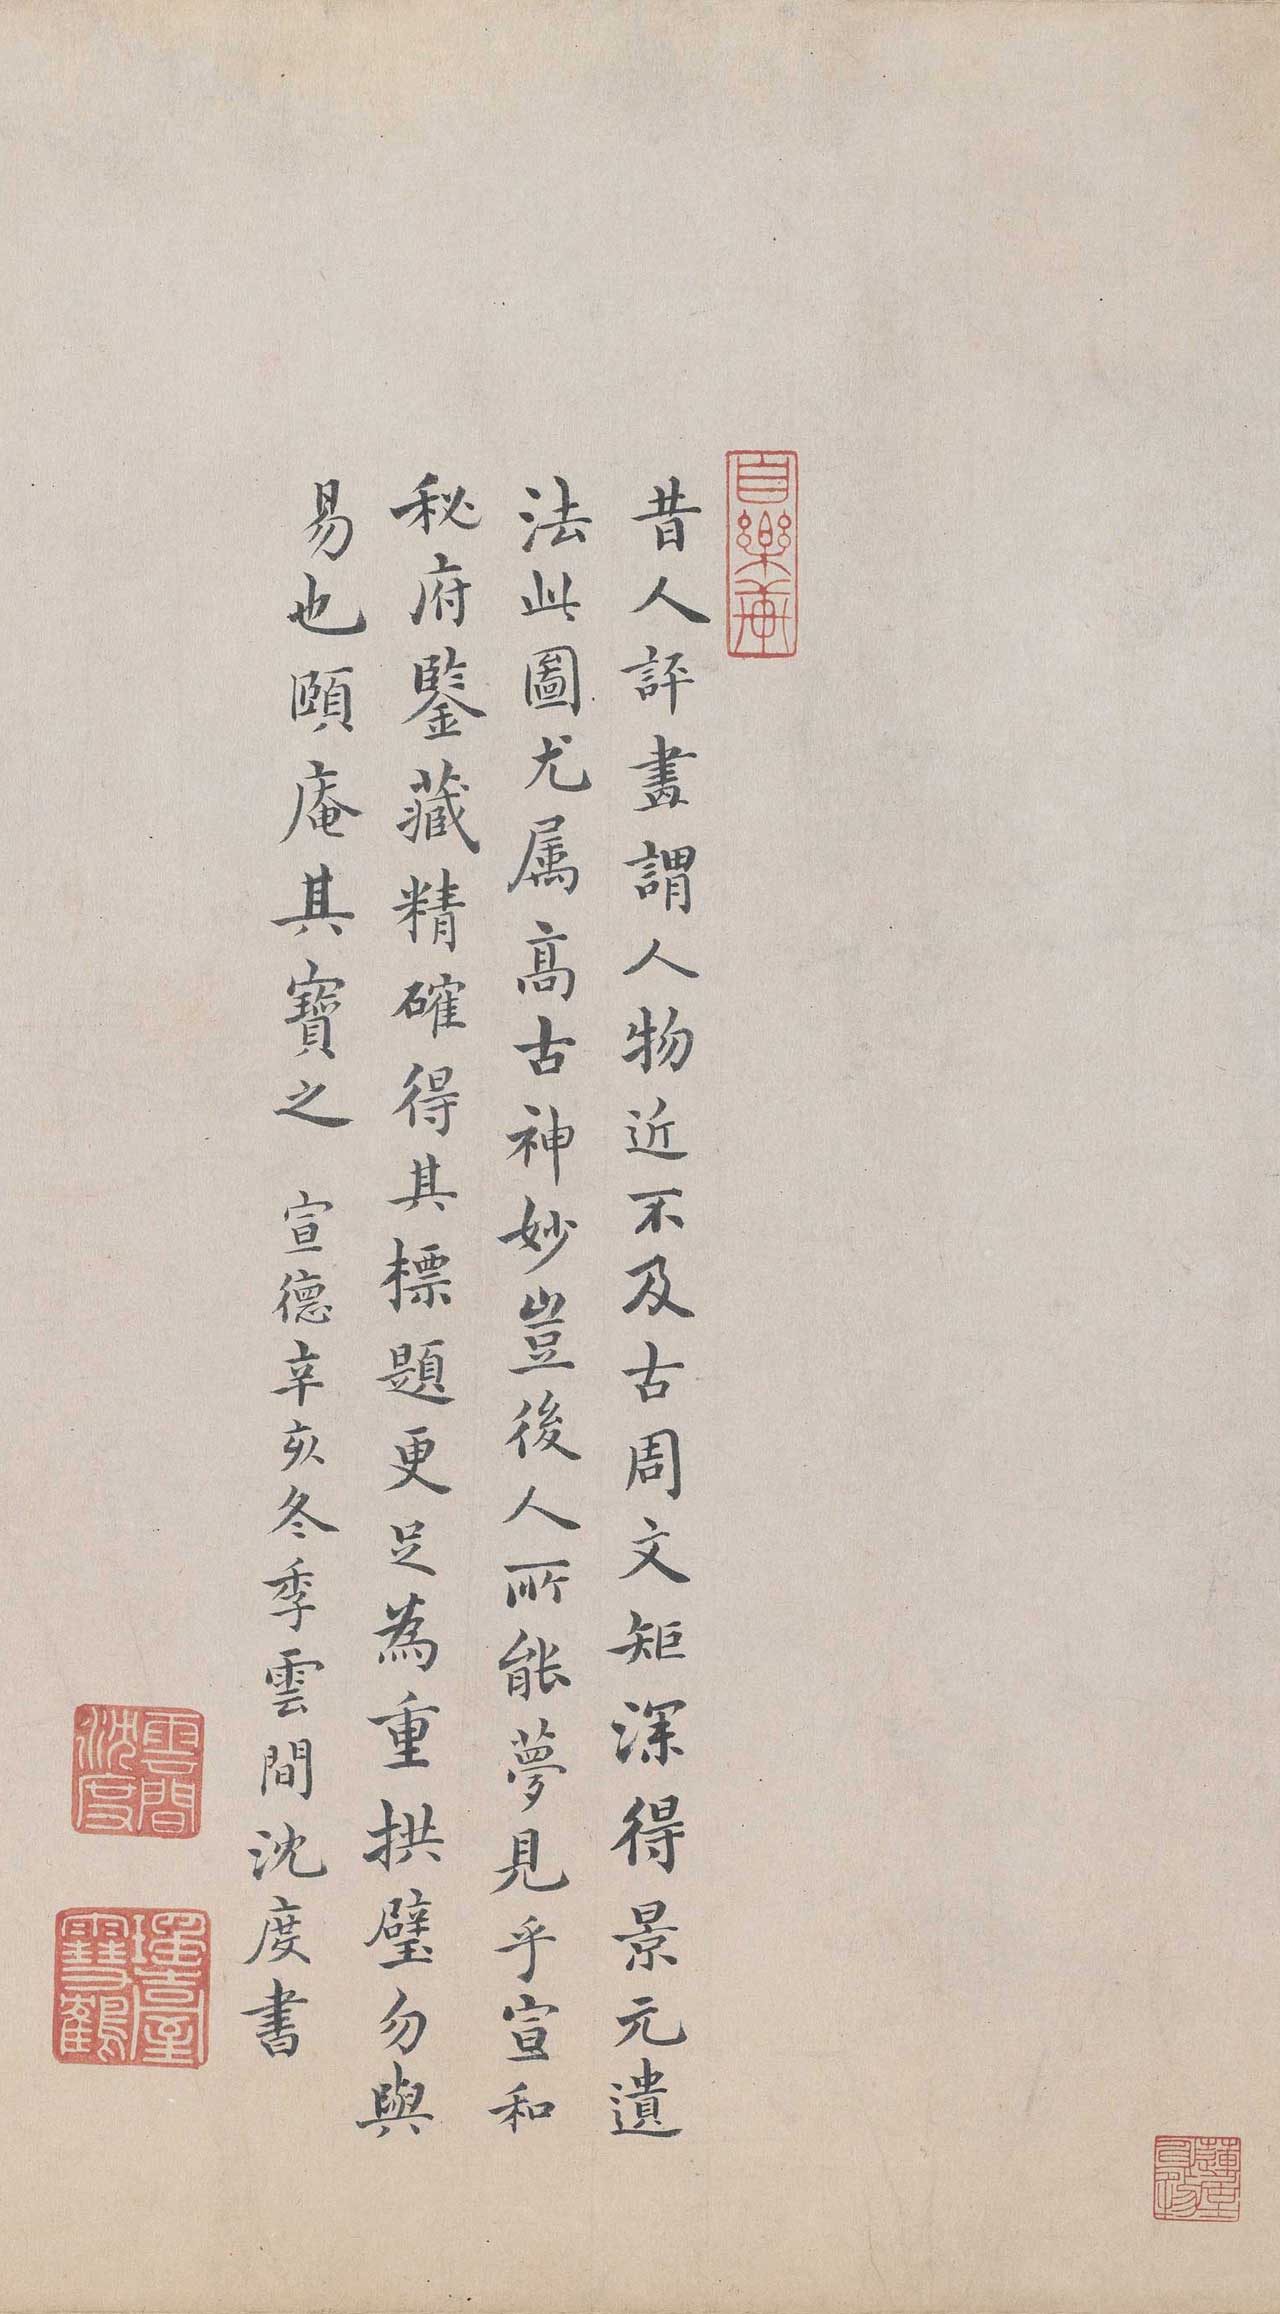 自樂軒
昔人評畫謂人物近不及古周文矩深得景元遺
法此圖尤属高古神妙豈後人所能夢見乎宣和
秘府鑒藏精確得其標題更足為重拱璧勿與
易也頤庵其寶之 宣德辛亥冬季雲間沈度書
雲間沈度